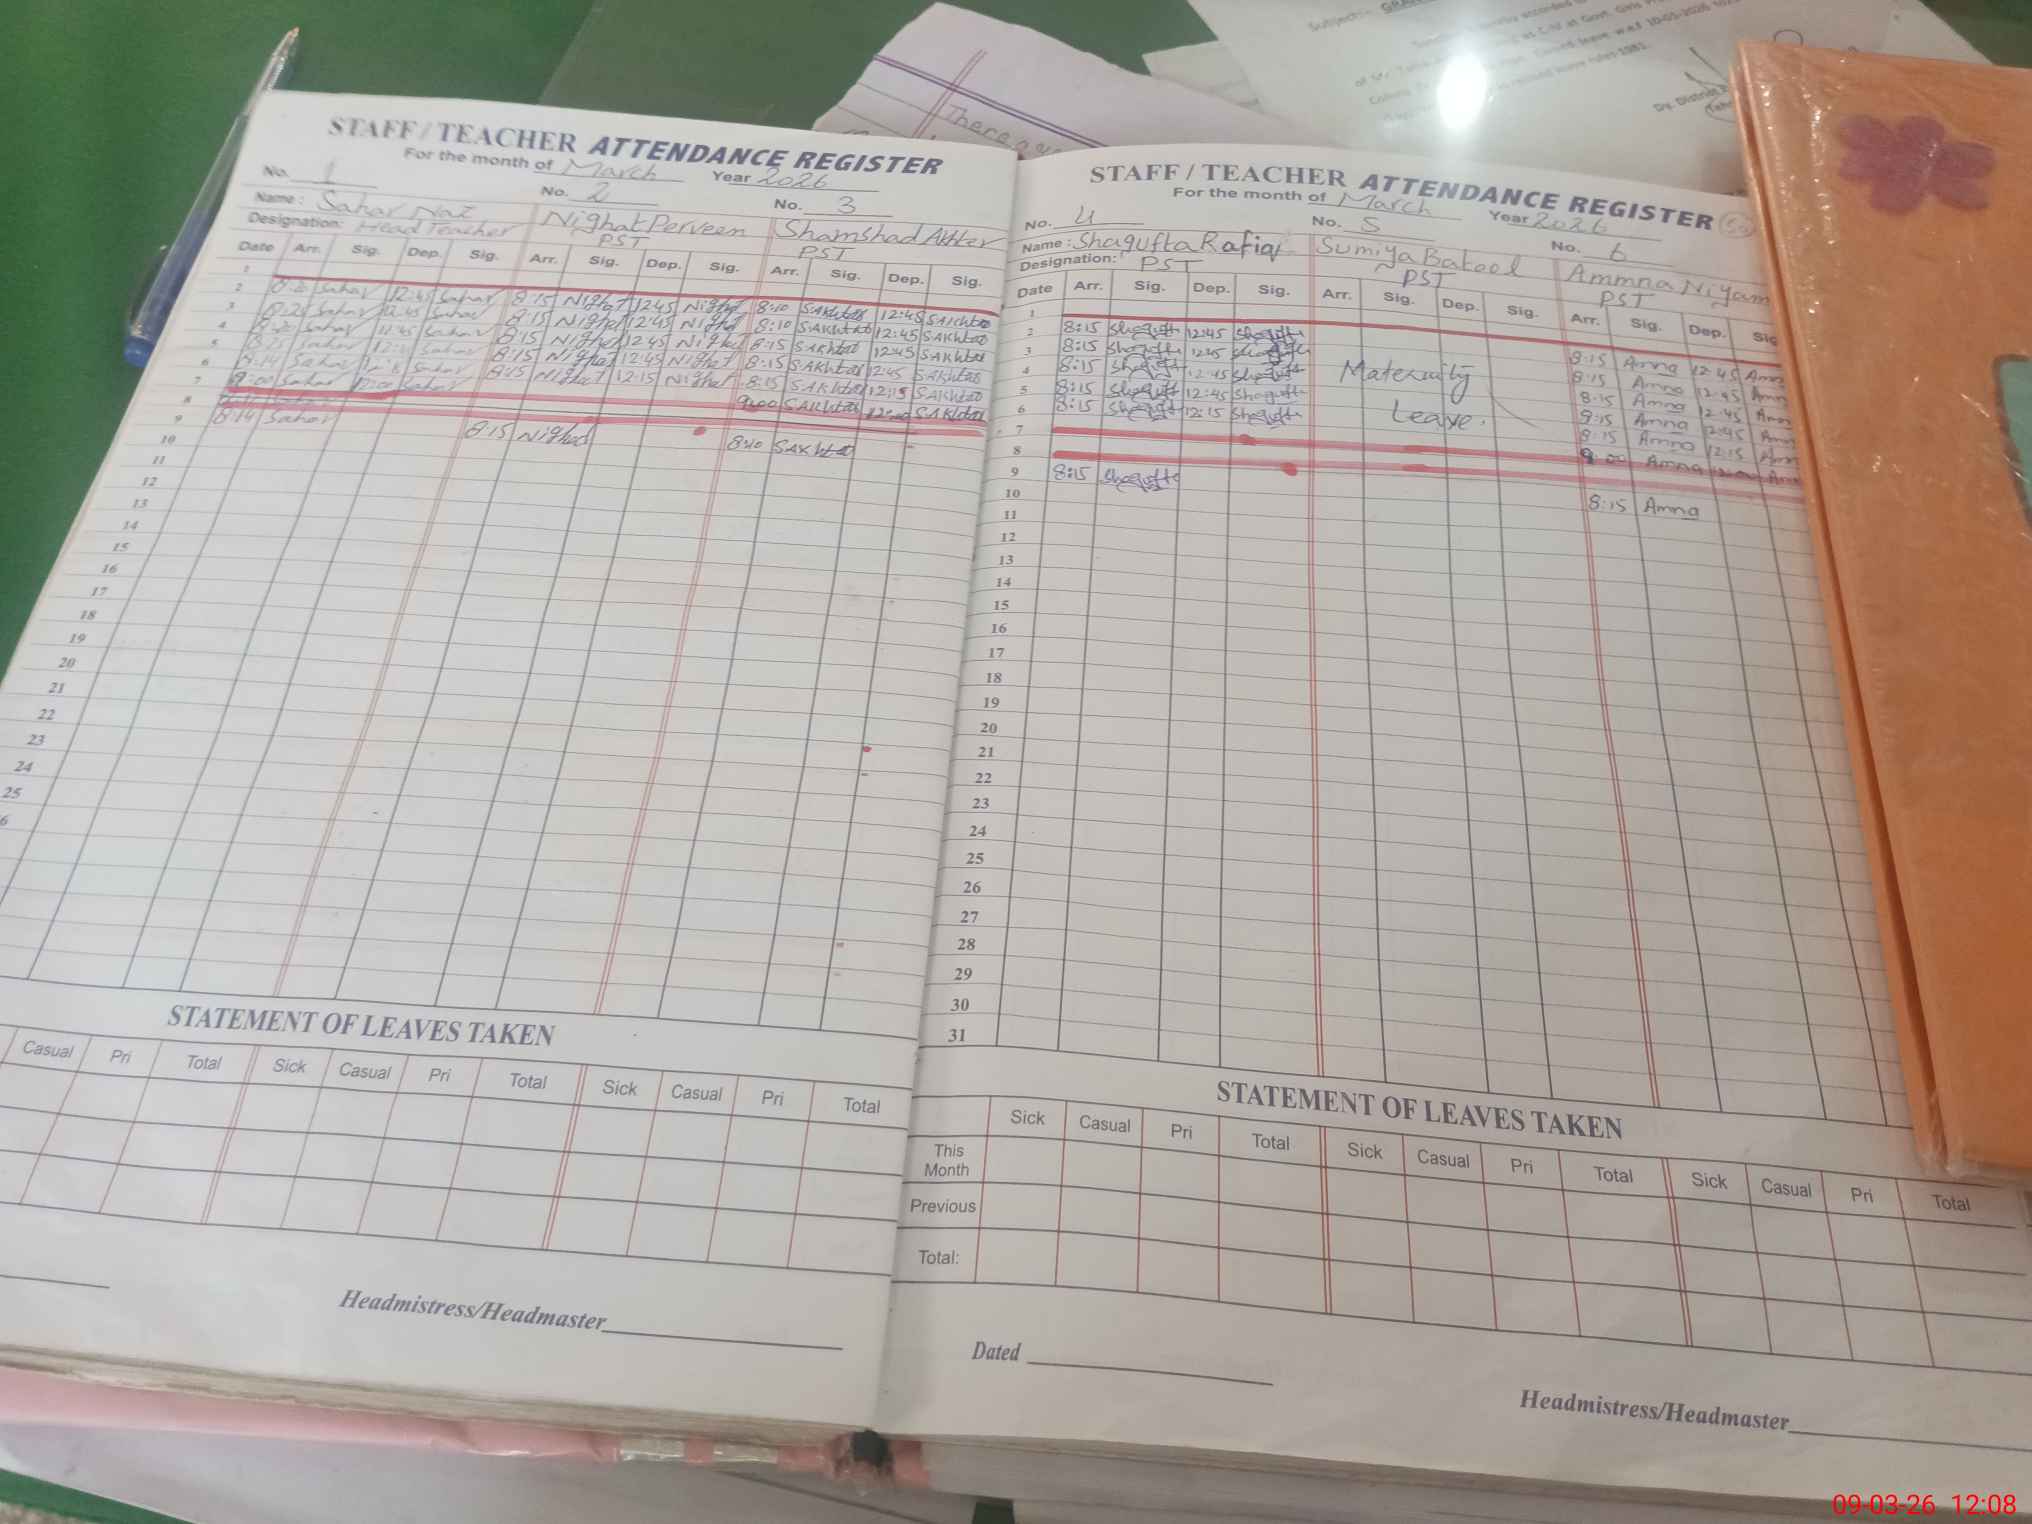 Subject:- GRAN
There a
STAFF / TEACHER ATTENDANCE REGISTER
For the month of March Year 2026
No. 1 No. 2 No. 3
Name: Sahar Naz Nighat Perveen Shamshad Akhter
Designation: Head Teacher PST PST
Date Arr. Sig. Dep. Sig. Arr. Sig. Dep. Sig. Arr. Sig. Dep. Sig.
1
2 8:20 Sahar 12:45 Sahar 8:15 Nighat 12:45 Nighat 8:10 SAkhtar 12:45 SAkhtar
3 8:20 Sahar 12:45 Sahar 8:15 Nighat 12:45 Nighat 8:10 SAkhtar 12:45 SAkhtar
4 8:20 Sahar 12:45 Sahar 8:15 Nighat 12:45 Nighat 8:15 SAkhtar 12:45 SAkhtar
5 Sahar Sahar 8:15 Nighat 12:45 Nighat 8:15 SAkhtar 12:45 SAkhtar
6 8:14 Sahar Sahar 8:15 Nighat 12:15 Nighat 8:15 SAkhtar 12:15 SAkhtar
7 9:00 Sahar 12:00 Sahar 9:00 SAkhtar 12:00 SAkhtar
8
9 8:14 Sahar 8:15 Nighat 8:10 SAkhtar
10
11
12
13
14
15
16
17
18
19
20
21
22
23
24
25
6
STATEMENT OF LEAVES TAKEN
Casual Pri Total Sick Casual Pri Total Sick Casual Pri Total
Headmistress/Headmaster
STAFF / TEACHER ATTENDANCE REGISTER
For the month of March Year 2026
No. 4 No. 5 No. 6
Name: Shagufta Rafiq Sumiya Batool Ammna Niyam
Designation: PST PST PST
Date Arr. Sig. Dep. Sig. Arr. Sig. Dep. Sig. Arr. Sig. Dep. Sig
1
2 8:15 Shagufta 12:45 Shagufta 8:15 Amna 12:45 Amn
3 8:15 Shagufta 12:45 Shagufta 8:15 Amna 12:45 Amn
4 8:15 Shagufta 12:45 Shagufta Maternity 8:15 Amna 12:45 Amn
5 8:15 Shagufta 12:45 Shagufta Leave. 8:15 Amna 12:45 Amn
6 8:15 Shagufta 12:15 Shagufta 8:15 Amna 12:15 Amn
7 9:00 Amna 12:00 Amn
8
9 8:15 Shagufta 8:15 Amna
10
11
12
13
14
15
16
17
18
19
20
21
22
23
24
25
26
27
28
29
30
31
STATEMENT OF LEAVES TAKEN
Sick Casual Pri Total Sick Casual Pri Total Sick Casual Pri Total
This Month
Previous
Total:
Dated
Headmistress/Headmaster
09-03-26 12:08